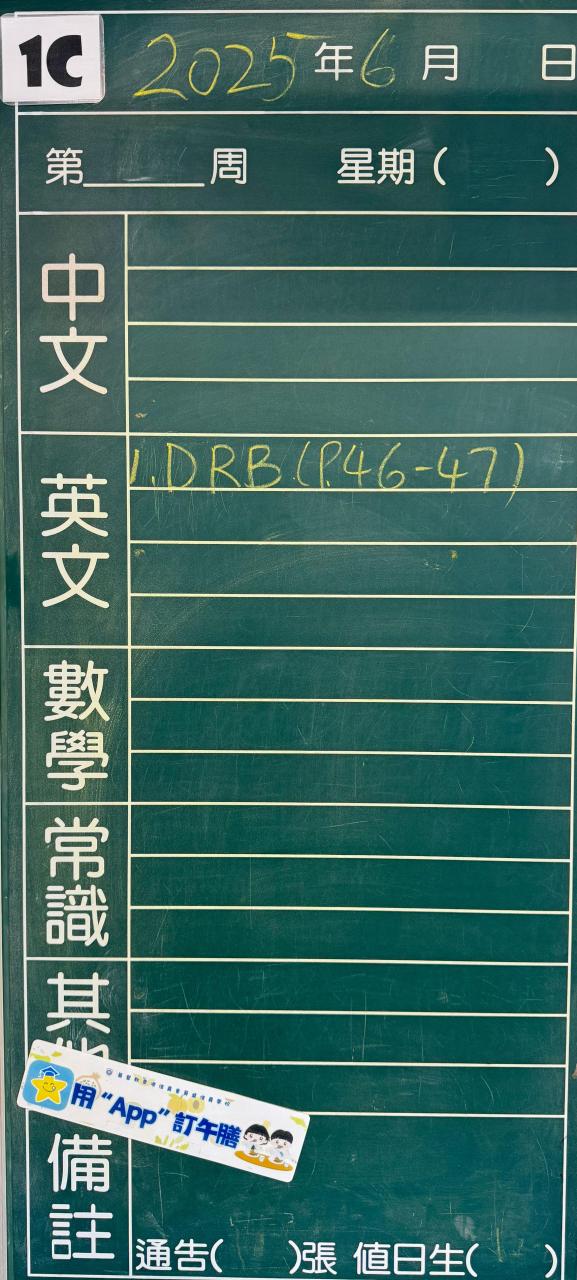 1C
2025年6月 日
第______周 星期( )
中文
英文
1.DRB(P.46-47)
數學
常識
其
用“App”訂午膳
備註
通告( )張 值日生( )